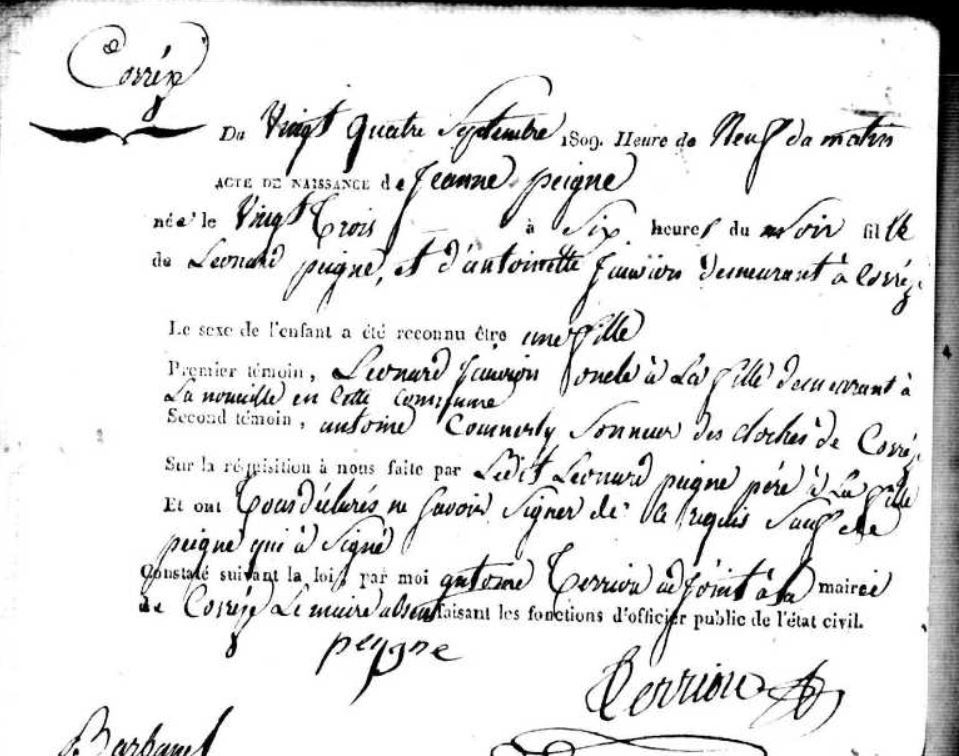 Corrèze
Du Vingt quatre Septembre 1809. Heure de Neuf du matin
ACTE DE NAISSANCE de Jeanne peigne
née le Vingt Trois à Six heures du Soir fille
de Leonard peigne, et d'antoinette demeurant à Corrèze
Le sexe de l'enfant a été reconnu être une fille
Premier témoin, Leonard oncle à La fille demeurant à
La nouaille en Cette Commune
Second témoin, antoine Sonneur des cloches de Corrèze
Sur la réquisition à nous faite par Ledit Leonard peigne père à La fille
Et ont Tous déclarés ne Savoir Signer de ce requis Sauf
peigne qui à Signé
Constaté suivant la loi, par moi antoine Terriou adjoint à la mairie
de Corrèze Le maire absent faisant les fonctions d'officier public de l'état civil.
peygne
Terriou